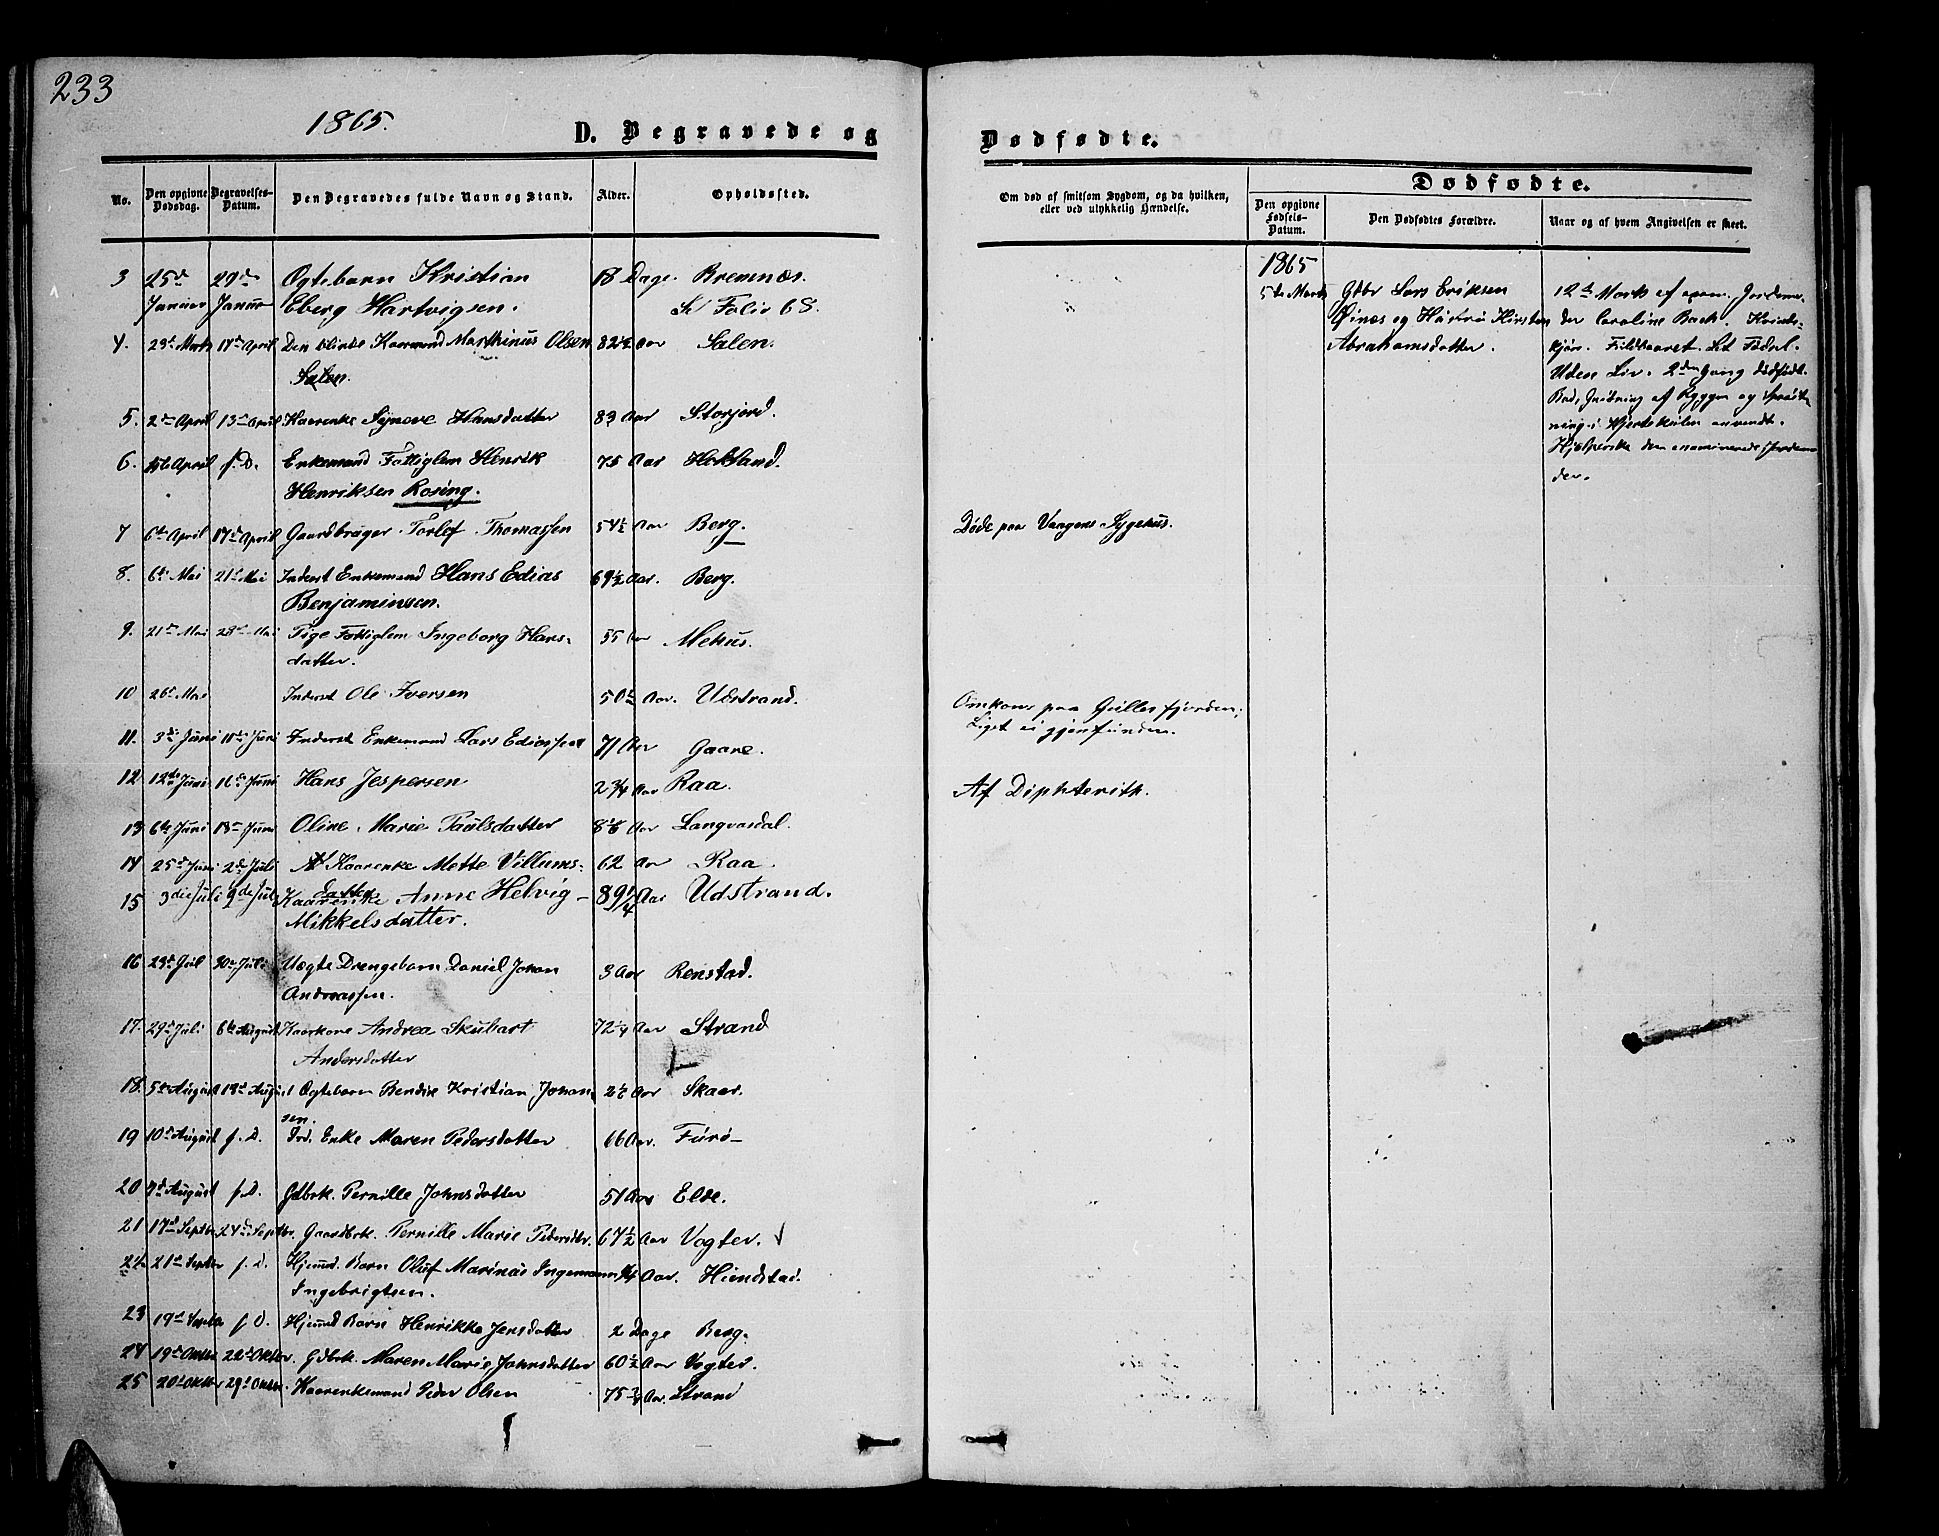 233
1865.
D. Begravede og
Dødfødte.
No.
Den opgivne Dødsdag.
Begravelses-Datum.
Den Begravedes fulde Navn og Stand.
Alder.
Opholdssted.
Om død af smitsom Sygdom, og da hvilken, eller ved ulykkelig Hændelse.
Dødfødte.
Den opgivne Fødsels-Datum.
Den Dødfødtes Forældre.
Naar og af hvem Angivelsen er skeet.
3 25de 29de Ægtebarn Kristian 18 Dage. Bremnæs
Januar Januar Eberg Hartvigsen. Folio 68.
4. 29de Marts 17de April Den blinde Kaarmand Marthinus Olsen 82½ Aar Salen.
Salen.
5. 2den April 13de April Kaarenke Synove Hansdatter 83 Aar Storjord.
6. April s. D. Enkemand Fattiglem Henrik 75 Aar Hokland.
Henriksen Rosing.
7 6te April 17de April Gaardbruger Torlef Thomassen 54½ Aar Berg. Døde paa Vaagens Sygehus.
8. 6te Mai 21de Mai Inderst Enkemand Hans Edias 69½ Aar. Berg.
Benjaminsen.
9. 21de Mai 28de Mai Pige Fattiglem Ingeborg Hans- 55 Aar Mehus.
datter.
10 26de Mai Inderst Ole Iversen 50 Aar. Udstrand. Omkom paa Gullesfjorden;
Liget ei gjenfunden.
11. 3die Juni 11te Juni Inderst Enkemand Lars Ediassen 71 Aar Gaare.
12 12te Juni 16de Juni Hans Jespersen 2¾ Aar Raa. Af Diphterith.
13 6te Juni 18de Juni Oline Marie Paulsdatter 8 Aar Langvasdal.
14 25de Juni 2den Juli Kaarenke Mette Villums- 62 Aar Raa.
datter
15 3die Juli 9de Juli Kaarenke Anne Helvig 89¼ Aar Udstrand.
Mikkelsdatter.
16 23de Jul 30te Juli Uægte Drengebarn Daniel Johan 3 Aar Renstad.
Andreassen.
17. 29de Juli 6te August Kaarkone Andrea Skubart 72¼ Aar Strand
Andersdatter
18. 5te August 13de August Ægtebarn Bendix Kristian Johan- 2 Aar Skaar.
sen.
19 10de August s. D. Ind. Enke Maren Pedersdatter 66 Aar. Furø
20 August s. D. Gdbrk. Pernille Johnsdatter 51 Aar Elde.
21 17de Septbr 24de Septbr. Gaardbrk. Pernille Marie Pedersdtr. 67½ Aar Vogter. √
22 21de Septbr s. D. Hjemd. Barn Oluf Marinus Ingemann ¼ Aar. Hiendstad.
Ingebrigtsen.
23 19de s. D. Hjemd Barn Henrikke Jensdatter 2 Dage Berg.
24 19de Oktbr 22de Oktbr. Gdbrk. Maren Marie Johnsdatter 60½ Aar Vogter.
25 20de Oktbr 29de Oktbr. Kaarenkemand Peder Olsen 75¾ Aar. Strand
1865
5te Marts Gdbr Lars Eriksen
Øinæs og Hustru Kirsten
Abrahamsdatter.
12te Marts af exam. Jordemo-
der Caroline Bach. Kvinds-
kjøn. Fuldbaaret. Let Fødsel.
Uden Liv. 2den Gang dødfødt.
Bad, Gnidning af Ryggen og Sprøit-
ning i Hjertekulen anvendt.
Hjælperske den examinerede Jordemo-
der.